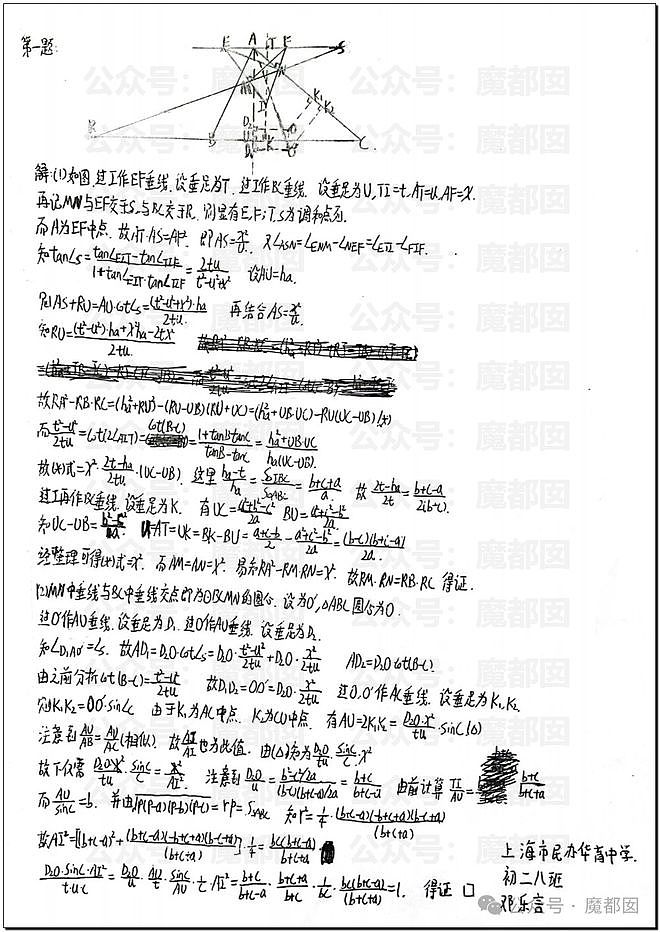 第一题:
E A T F S
M N
I
K₁ K₂
R B D₂ U D₁ K O O' C
解:(1)如图,过I作EF垂线,设垂足为T,过I作BC垂线,设垂足为U,TI=t,AT=u,AF=x.
再记MN与EF交于S,与BC交于R,则显有E,F;T,S为调和点列.
而A为EF中点,故AT·AS=AF², 即AS=x²/u, 又∠ASN=∠ENM-∠NEF=∠EIT-∠FIF.
知tan∠S=(tan∠EIT-tan∠TIF)/(1+tan∠EIT·tan∠TIF)=2tu/(t²-u²+x²) 设AU=ha.
则AS+RU=AU·cot∠S=(t²-u²+x²)·ha/2tu. 再结合AS=x²/u.
知RU=((t²-u²)·ha+x²ha-2tx²)/2tu.
故RA²-RB·RC=(ha²+RU²)-(RU-UB)(RU+UC)=(ha²+UB·UC)-RU(UC-UB) (*)
而(t²-u²)/2tu=cot(2∠AIT)=cot(B-C)=(1+tanB·tanC)/(tanB-tanC)=(ha²+UB·UC)/(ha(UC-UB)).
故(*)式=x²·(2t-ha)/2tu·(UC-UB). 这里ha/(ha-t)=S△IBC/S△ABC=(b+c+a)/a 故(2t-ha)/2t=(b+c-a)/2(b+c).
过I再作BC垂线,设垂足为K. 有UC=(a²+b²-c²)/2a BU=(a²+c²-b²)/2a
知UC-UB=(b²-c²)/a. u=AT=UK=BK-BU=(a+c-b)/2-(a²+c²-b²)/2a=(b-c)(b+c-a)/2a.
经整理可得(*)式=x². 而AM=AN=x, 易知RA²-RM·RN=x². 故RM·RN=RB·RC 得证.
(2)MN中垂线与BC中垂线交点即为⊙BCMN的圆心, 设为O',△ABC圆心为O.
过O'作AU垂线,设垂足为D₁, 过O作AU垂线,设垂足为D₂.
知∠D₁AO'=∠S. 故AD₁=D₂O·cot∠S=D₂O·(t²-u²)/2tu+D₂O·x²/2tu AD₂=D₂O·cot(B-C).
由之前分析cot(B-C)=(t²-u²)/2tu 故D₁D₂=OO'=D₂O·x²/2tu 过O,O'作AC垂线,设垂足为K₁,K₂
则K₁K₂=OO'·sin∠C 由于K₁为AC中点, K₂为CU中点, 有AU=2K₁K₂=D₂O·x²/tu·sinC(△)
注意到AU/AB=AU/AC(相似), 故AI/AI也为此值, 由(△)知为D₂O/tu·sinC/c·x²
故下仅需D₂O·x²/tu·sinC/c=x²/AI². 注意到D₂O/u=(b²-c²/2a)/((b-c)(b+c-a)/2a)=(b+c)/(b+c-a) 由前计算TI/AU=(b+c)/(b+c+a)
而AU/sinC=b, 并由√p(p-a)(p-b)(p-c)=rp=S△ABC 知r²=¼·(b+c-a)(-b+c+a)(b-c+a)/(b+c+a)
故AI²=[(b+c-a)²+(b+c-a)(-b+c+a)(b-c+a)/(b+c+a)]·¼=bc(b+c-a)/(b+c+a)
D₂O·sinC·AI²/t·u·c=D₂O/u·AU/t·sinC/AU·1/c·AI²=(b+c)/(b+c-a)·(b+c+a)/(b+c)·1/bc·bc(b+c-a)/(b+c+a)=1. 得证 □
上海市民办华育中学.
初二八班
邓乐言
公众号:魔都囡